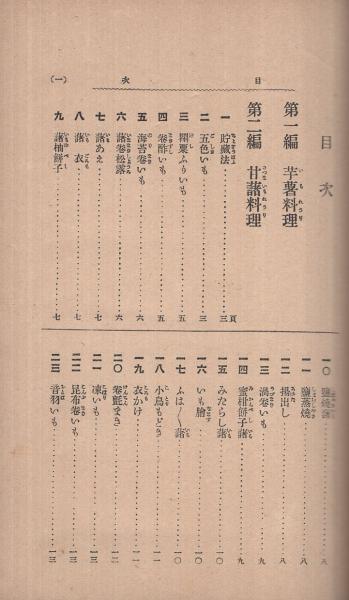 目次
(一)
目次
第一編 芋薯料理
第二編 甘藷料理
一 貯藏法……三頁
二 五色いも……三
三 罌粟ふりいも……五
四 卷酢いも……五
五 海苔卷いも……六
六 藷卷松露……六
七 藷あえ……七
八 藷衣……七
九 藷柚餅子……七
一〇 鹽燒藷……八
一一 鹽蒸燒……八
一二 揚出し……八
一三 渦卷いも……九
一四 蜜柑餅子藷……九
一五 みたらし藷……一〇
一六 いも膾……一〇
一七 ふは〱藷……一〇
一八 小鳥もどき……一一
一九 衣かけ……一一
二〇 卷氈まき……一二
二一 凍いも……一三
二二 昆布卷いも……一三
二三 音羽いも……一三